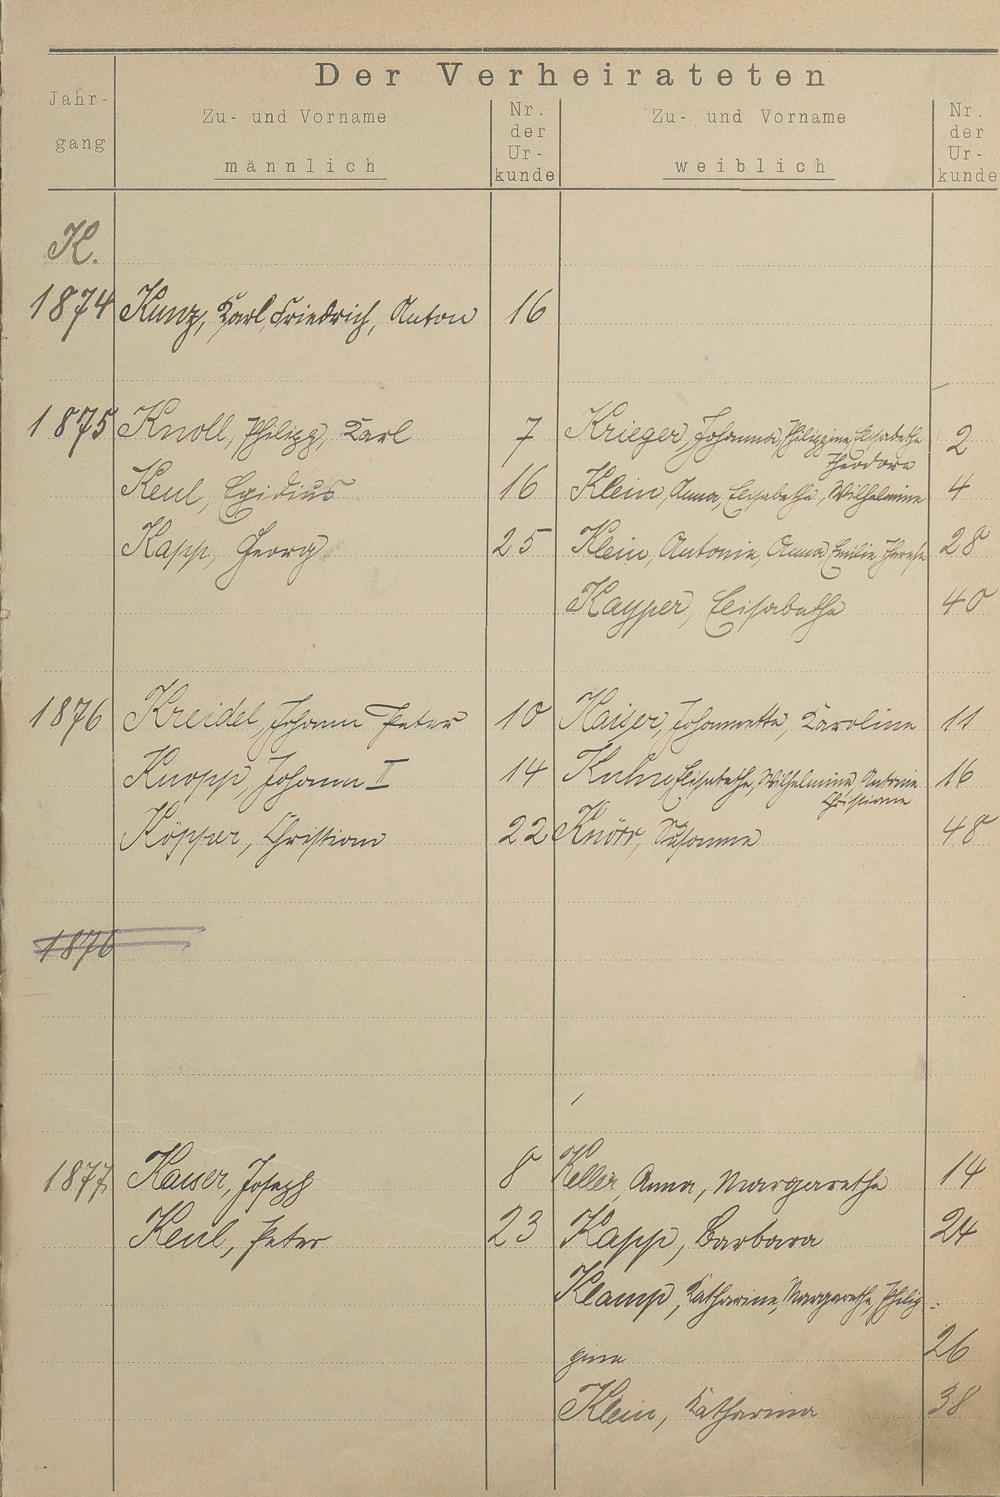 Der Verheirateten
Jahr-
gang
Zu- und Vorname
männlich
Nr.
der
Ur-
kunde
Zu- und Vorname
weiblich
Nr.
der
Ur-
kunde
K.
1874 Kunz, Karl Friedrich, Anton 16
1875 Knoll, Philipp, Karl 7 Krieger, Johanna, Philippine, Elisabethe 2
Theodore
Keul, Egidius 16 Klein, Anna, Elisabetha, Wilhelmine 4
Kapp, Georg 25 Klein, Antonie, Anna, Emilie, Therese 28
Kayper, Elisabetha 40
1876 Kreidel, Johann Peter 10 Kaiser, Johannette, Karoline 11
Knopp, Johann II 14 Kuhn, Elisabethe, Wilhelmine, Antonie 16
Christiane
Köpper, Christian 22 Knörr, Susanna 48
1876
1877 Kaiser, Joseph 8 Keller, Anna, Margarethe 14
Keul, Peter 23 Kapp, Barbara 24
Klamp, Katharine, Margarethe, Philip-
pine 26
Klein, Katharina 38